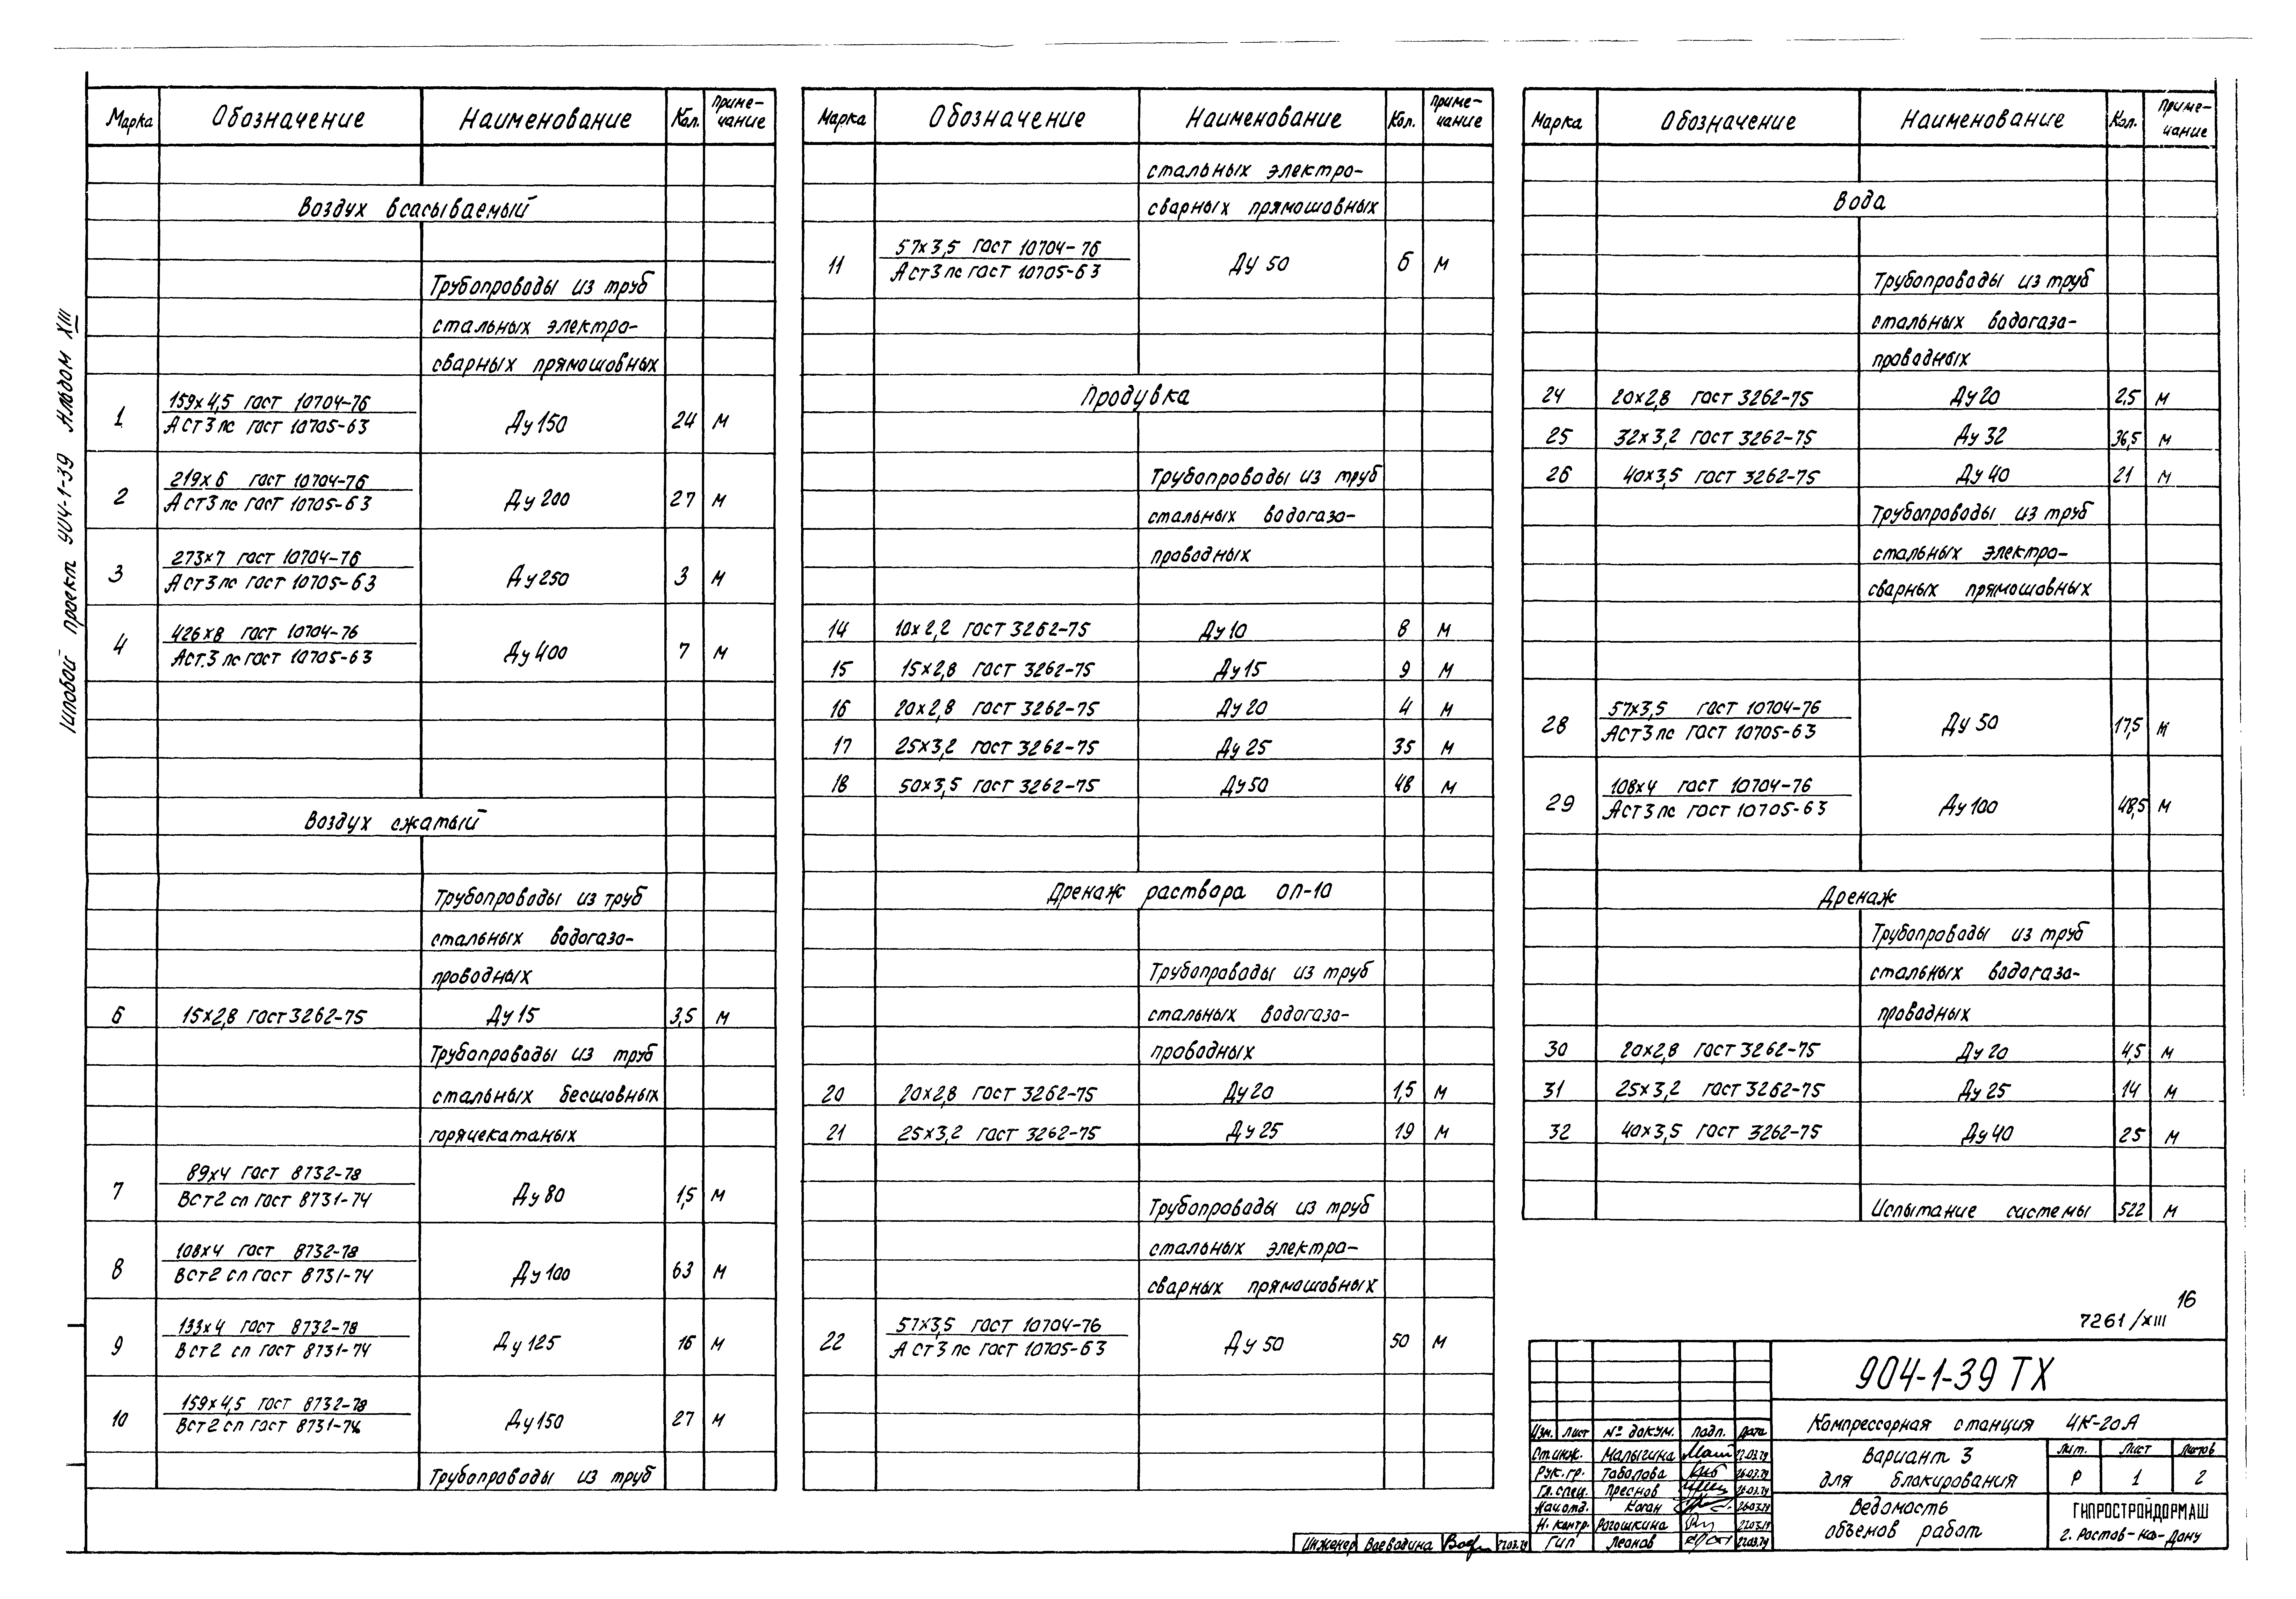 Типовой проект 904-1-39 Альбом XIII
Марка Обозначение Наименование Кол. Приме-чание
Воздух всасываемый
Трубопроводы из труб
стальных электро-
сварных прямошовных
1 159х4,5 ГОСТ 10704-76 / АСт3пс ГОСТ 10705-63 Ду 150 24 м
2 219х6 ГОСТ 10704-76 / АСт3пс ГОСТ 10705-63 Ду 200 27 м
3 273х7 ГОСТ 10704-76 / АСт3пс ГОСТ 10705-63 Ду 250 3 м
4 426х8 ГОСТ 10704-76 / АСт.3пс ГОСТ 10705-63 Ду 400 7 м
Воздух сжатый
Трубопроводы из труб
стальных водогазо-
проводных
6 15х2,8 ГОСТ 3262-75 Ду 15 3,5 м
Трубопроводы из труб
стальных бесшовных
горячекатаных
7 89х4 ГОСТ 8732-78 / ВСт2сп ГОСТ 8731-74 Ду 80 1,5 м
8 108х4 ГОСТ 8732-78 / ВСт2сп ГОСТ 8731-74 Ду 100 63 м
9 133х4 ГОСТ 8732-78 / ВСт2сп ГОСТ 8731-74 Ду 125 16 м
10 159х4,5 ГОСТ 8732-78 / ВСт2сп ГОСТ 8731-74 Ду 150 27 м
Трубопроводы из труб
Марка Обозначение Наименование Кол. Приме-чание
стальных электро-
сварных прямошовных
11 57х3,5 ГОСТ 10704-76 / АСт3пс ГОСТ 10705-63 Ду 50 6 м
Продувка
Трубопроводы из труб
стальных водогазо-
проводных
14 10х2,2 ГОСТ 3262-75 Ду 10 8 м
15 15х2,8 ГОСТ 3262-75 Ду 15 9 м
16 20х2,8 ГОСТ 3262-75 Ду 20 4 м
17 25х3,2 ГОСТ 3262-75 Ду 25 35 м
18 50х3,5 ГОСТ 3262-75 Ду 50 48 м
Дренаж раствора ОП-10
Трубопроводы из труб
стальных водогазо-
проводных
20 20х2,8 ГОСТ 3262-75 Ду 20 1,5 м
21 25х3,2 ГОСТ 3262-75 Ду 25 19 м
Трубопроводы из труб
стальных электро-
сварных прямошовных
22 57х3,5 ГОСТ 10704-76 / АСт3пс ГОСТ 10705-63 Ду 50 50 м
Марка Обозначение Наименование Кол. Приме-чание
Вода
Трубопроводы из труб
стальных водогазо-
проводных
24 20х2,8 ГОСТ 3262-75 Ду 20 2,5 м
25 32х3,2 ГОСТ 3262-75 Ду 32 36,5 м
26 40х3,5 ГОСТ 3262-75 Ду 40 21 м
Трубопроводы из труб
стальных электро-
сварных прямошовных
28 57х3,5 ГОСТ 10704-76 / АСт3пс ГОСТ 10705-63 Ду 50 17,5 м
29 108х4 ГОСТ 10704-76 / АСт3пс ГОСТ 10705-63 Ду 100 48,5 м
Дренаж
Трубопроводы из труб
стальных водогазо-
проводных
30 20х2,8 ГОСТ 3262-75 Ду 20 4,5 м
31 25х3,2 ГОСТ 3262-75 Ду 25 14 м
32 40х3,5 ГОСТ 3262-75 Ду 40 25 м
Испытание системы 522 м
16
7261/XIII
904-1-39 ТХ
Компрессорная станция 4К-20А
Изм. Лист № докум. Подп. Дата
Ст.инж. Малыгина
Рук.гр. Таболова 26.03.79
Гл.спец. Преснов 26.03.79
Нач.отд. Коган 26.03.79
Н.контр. Рогошкина 27.03.79
ГИП Леонов 27.03.79
Инженер Воеводина 27.03.79
Вариант 3
для блокирования
Лит. Лист Листов
Р 1 2
Ведомость
объемов работ
ГИПРОСТРОЙДОРМАШ
г. Ростов-на-Дону